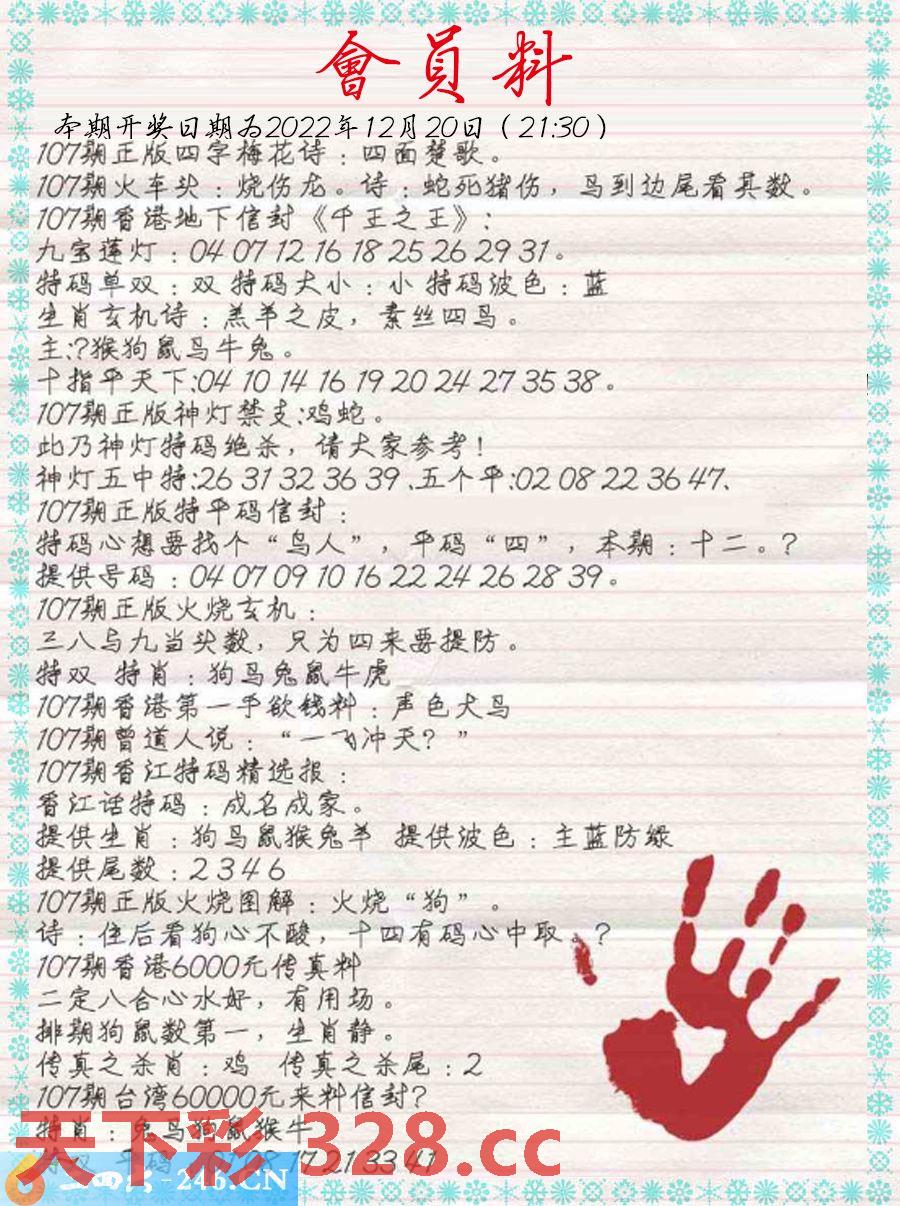 會員料
本期开奖日期为2022年12月20日（21:30）
107期正版四字梅花诗：四面楚歌。
107期火车头：烧伤龙。诗：蛇死猪伤，马到边尾看其数。
107期香港地下信封《千王之王》：
九宝莲灯：04 07 12 16 18 25 26 29 31。
特码单双：双 特码大小：小 特码波色：蓝
生肖玄机诗：羔羊之皮，素丝四马。
主:?猴狗鼠马牛兔。
十指平天下:04 10 14 16 19 20 24 27 35 38。
107期正版神灯禁支:鸡蛇。
此乃神灯特码绝杀，请大家参考！
神灯五中特:26 31 32 36 39、五个平:02 08 22 36 47、
107期正版特平码信封：
特码心想要找个“鸟人”，平码“四”，本期：十二。？
提供号码：04 07 09 10 16 22 24 26 28 39。
107期正版火烧玄机：
三八与九当头数，只为四来要提防。
特双 特肖：狗马兔鼠牛虎
107期香港第一手欲钱料：声色犬马
107期曾道人说：“一飞冲天？”
107期香江特码精选报：
香江话特码：成名成家。
提供生肖：狗马鼠猴兔羊 提供波色：主蓝防绿
提供尾数：2 3 4 6
107期正版火烧图解：火烧“狗”。
诗：住后看狗心不酸，十四有码心中取。？
107期香港6000元传真料
二定八合心水好，有用场。
排期狗鼠数第一，生肖静。
传真之杀肖：鸡 传真之杀尾：2
107期台湾60000元来料信封？
特肖：兔马狗鼠猴牛
17 21 33 41
天下彩 328.cc
-246.CN